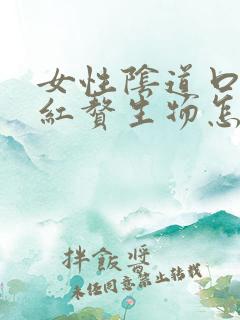 女性陰道口
紅贅生物怎
拌飯醬
未经同意禁止转载